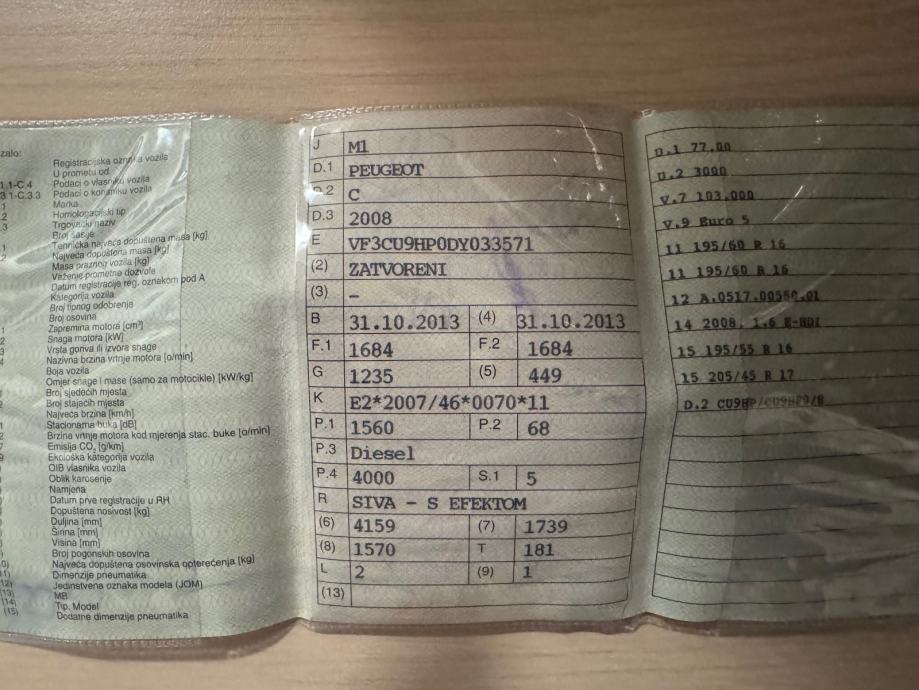 zalo:
Registracijska oznaka vozila
U prometu od
1.1-C.4 Podaci o vlasniku vozila
3.1-C.3.3 Podaci o korisniku vozila
1 Marka
2 Homologacijski tip
3 Trgovački naziv
Broj šasije
1 Tehnička najveća dopuštena masa [kg]
2 Najveća dopuštena masa [kg]
Masa praznog vozila [kg]
Važenje prometne dozvole
Datum registracije reg. oznakom pod A
Kategorija vozila
Broj tipnog odobrenja
Broj osovina
1 Zapremina motora [cm³]
2 Snaga motora [kW]
3 Vrsta goriva ili izvora snage
4 Nazivna brzina vrtnje motora [o/min]
Boja vozila
Omjer snage i mase (samo za motocikle) [kW/kg]
Broj sjedećih mjesta
2 Broj stajaćih mjesta
Najveća brzina [km/h]
1 Stacionarna buka [dB]
2 Brzina vrtnje motora kod mjerenja stac. buke [o/min]
7 Emisija CO₂ [g/km]
9 Ekološka kategorija vozila
OIB vlasnika vozila
Oblik karoserije
Namjena
Datum prve registracije u RH
Dopuštena nosivost [kg]
Duljina [mm]
Širina [mm]
Visina [mm]
Broj pogonskih osovina
0) Najveća dopuštena osovinska opterećenja [kg]
11) Dimenzije pneumatika
(12) Jedinstvena oznaka modela (JOM)
(13) MB
(14) Tip, Model
(15) Dodatne dimenzije pneumatika
J M1
D.1 PEUGEOT
D.2 C
D.3 2008
E VF3CU9HP0DY033571
(2) ZATVORENI
(3) –
B 31.10.2013 (4) 31.10.2013
F.1 1684 F.2 1684
G 1235 (5) 449
K E2*2007/46*0070*11
P.1 1560 P.2 68
P.3 Diesel
P.4 4000 S.1 5
R SIVA - S EFEKTOM
(6) 4159 (7) 1739
(8) 1570 T 181
L 2 (9) 1
(13)
U.1 77,00
U.2 3000
V.7 103,000
V.9 Euro 5
11 195/60 R 16
11 195/60 R 16
12 A.0517.00550.01
14 2008, 1.6 E-HDI
15 195/55 R 16
15 205/45 R 17
D.2 CU9HP/CU9HP9/B